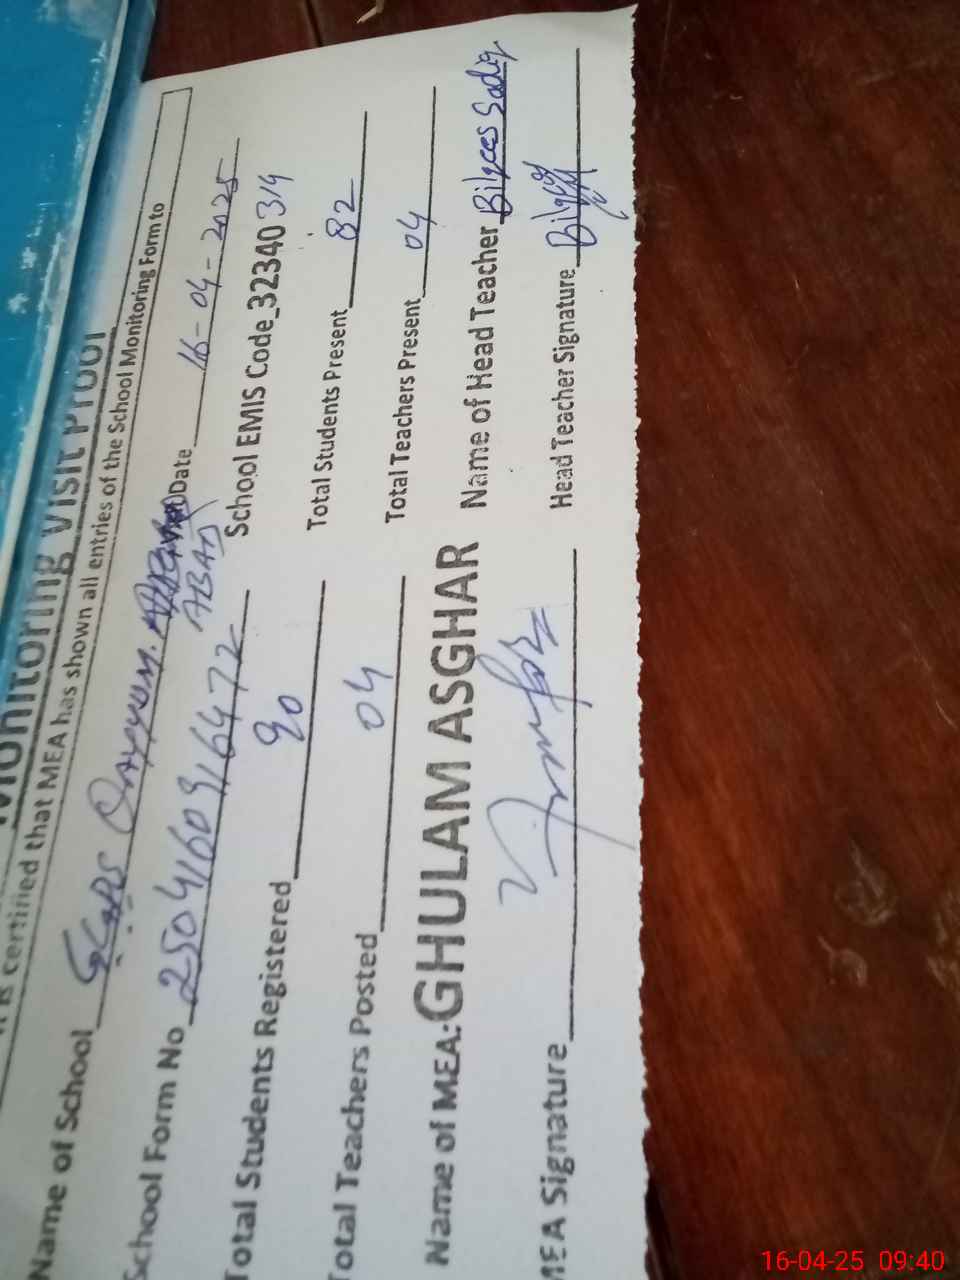 Monitoring Visit Proof
It is certified that MEA has shown all entries of the School Monitoring Form to
Name of School GGPS Qayyum. Date 16-04-2025
ABAD
School Form No 25041609316472 School EMIS Code_32340 314
Total Students Registered 90 Total Students Present 82
Total Teachers Posted 04 Total Teachers Present 04
Name of MEA: GHULAM ASGHAR Name of Head Teacher Bilqees Sadiq
MEA Signature Head Teacher Signature Bilqees
16-04-25 09:40